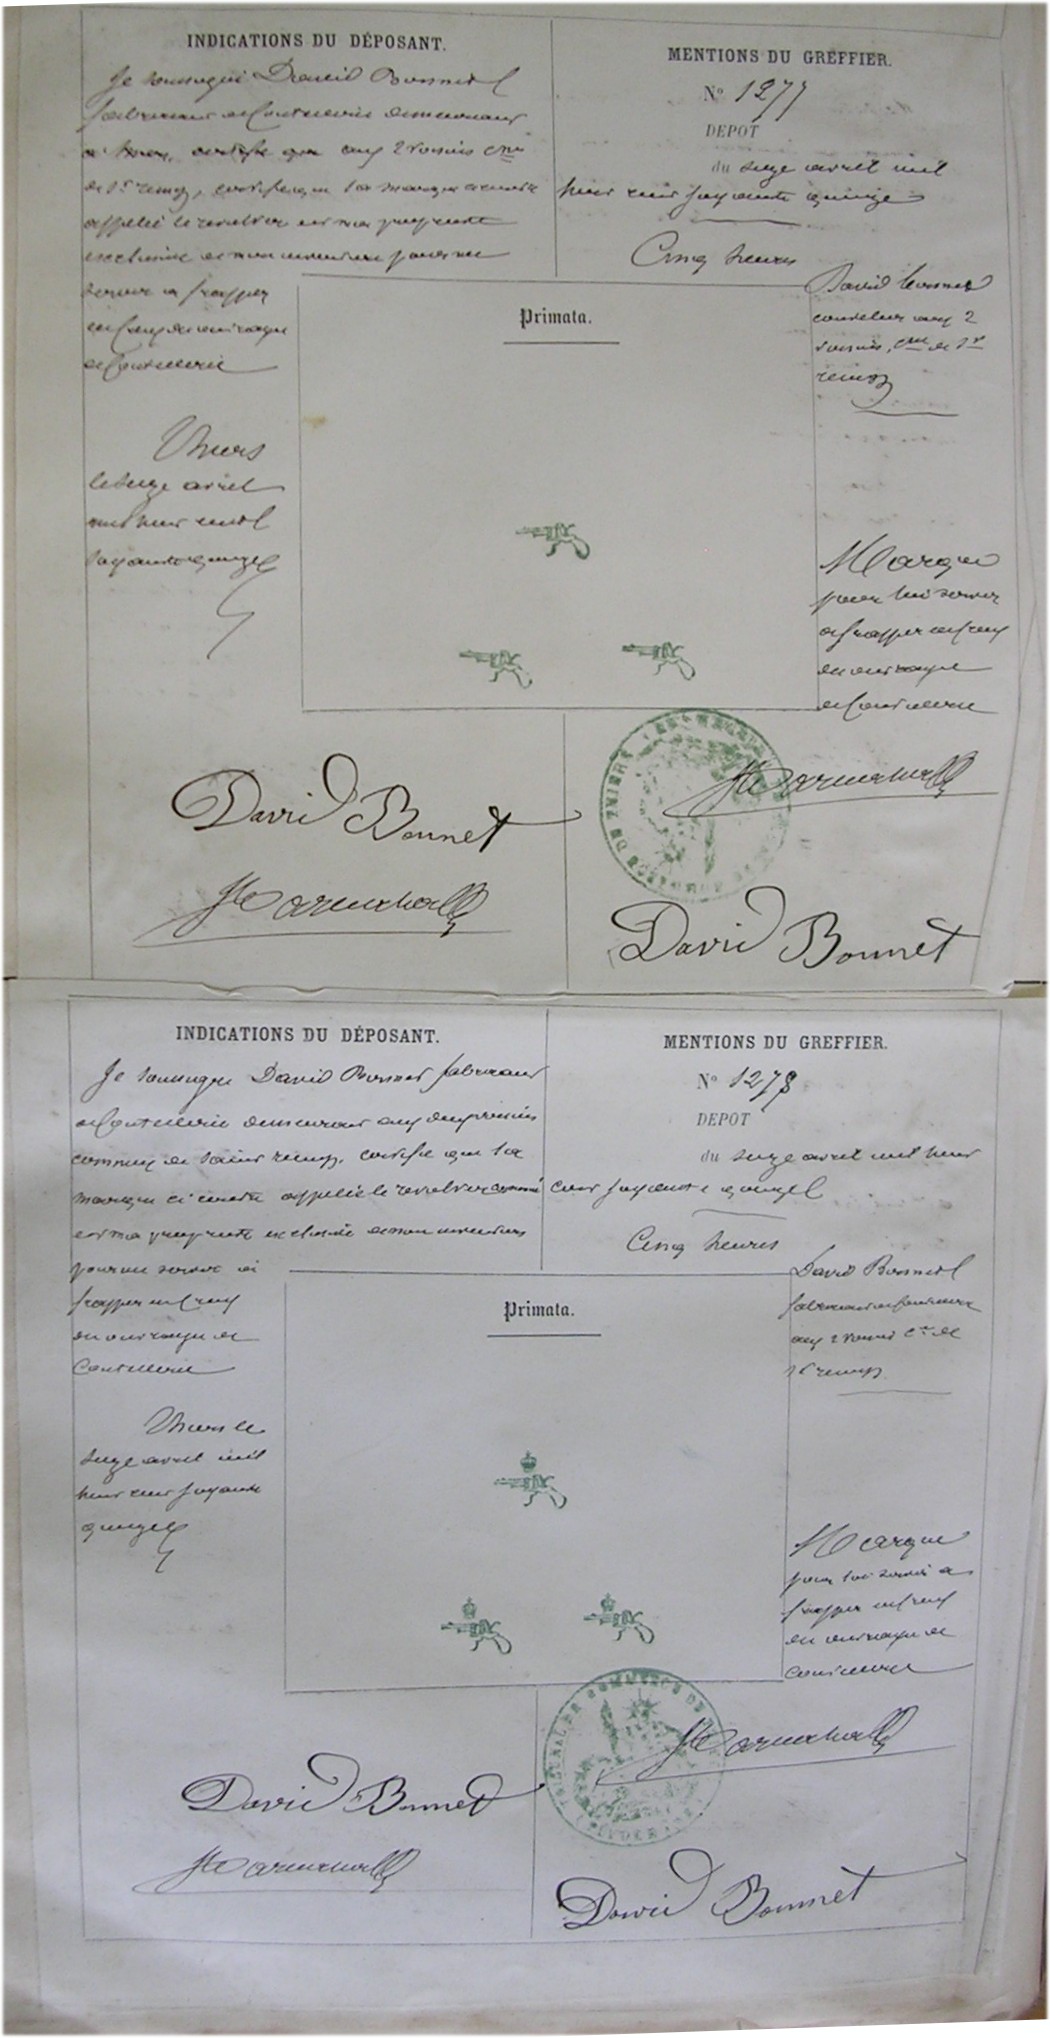 INDICATIONS DU DÉPOSANT.
Je soussigné David Bonnet
fabricant de Coutellerie demeurant
certifie que aux 2 voisins Cne
de St remy, certifie que la marque ci contre
appelée le revolver est ma propriété
exclusive et mon invention pour me
servir à frapper
ouvrages
de Coutellerie
Thiers
le seize avril
mil huit cent
soixante quinze
David Bonnet
MENTIONS DU GREFFIER.
No 1277
DEPOT
du seize avril mil
huit cent soixante quinze
Cinq heures
Primata.
David Bonnet
coutelier aux 2
voisins, Cne de St
remy
Marque
pour lui servir
à frapper
ouvrages
de Coutellerie
David Bonnet
INDICATIONS DU DÉPOSANT.
Je soussigné David Bonnet fabricant
de Coutellerie demeurant aux deux voisins
commune de Saint remy, certifie que la
marque ci contre appelée le revolver couronné
est ma propriété exclusive et mon invention
pour me servir à
frapper
ouvrages de
Coutellerie
Thiers le
seize avril mil
huit cent soixante
quinze
David Bonnet
MENTIONS DU GREFFIER.
No 1278
DEPOT
du seize avril mil huit
cent soixante quinze
Cinq heures
Primata.
David Bonnet
fabricant de coutellerie
aux 2 voisins Cne de
St remy
Marque
pour lui servir à
frapper
ouvrages de
Coutellerie
TRIBUNAL DE COMMERCE DE
David Bonnet